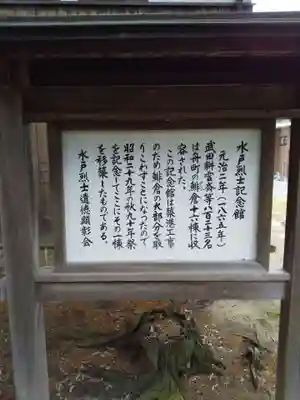 水戸烈士記念館
元治二年(一八六五年)
武田耕雲斎等八百二十三名
は舟町の鯡倉十六棟に収
容された。
この記念館は築港工事
のため鯡倉の大部分を取
りこわすことになったので
昭和二十九年の秋九十年祭
を記念してここにその一棟
を移築したものである。
水戸烈士遺徳顕彰会